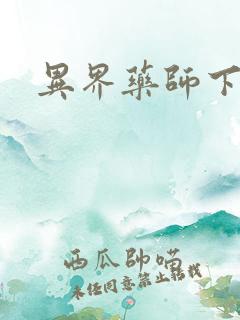 異界藥師下
西瓜帥喵
未经同意禁止转载